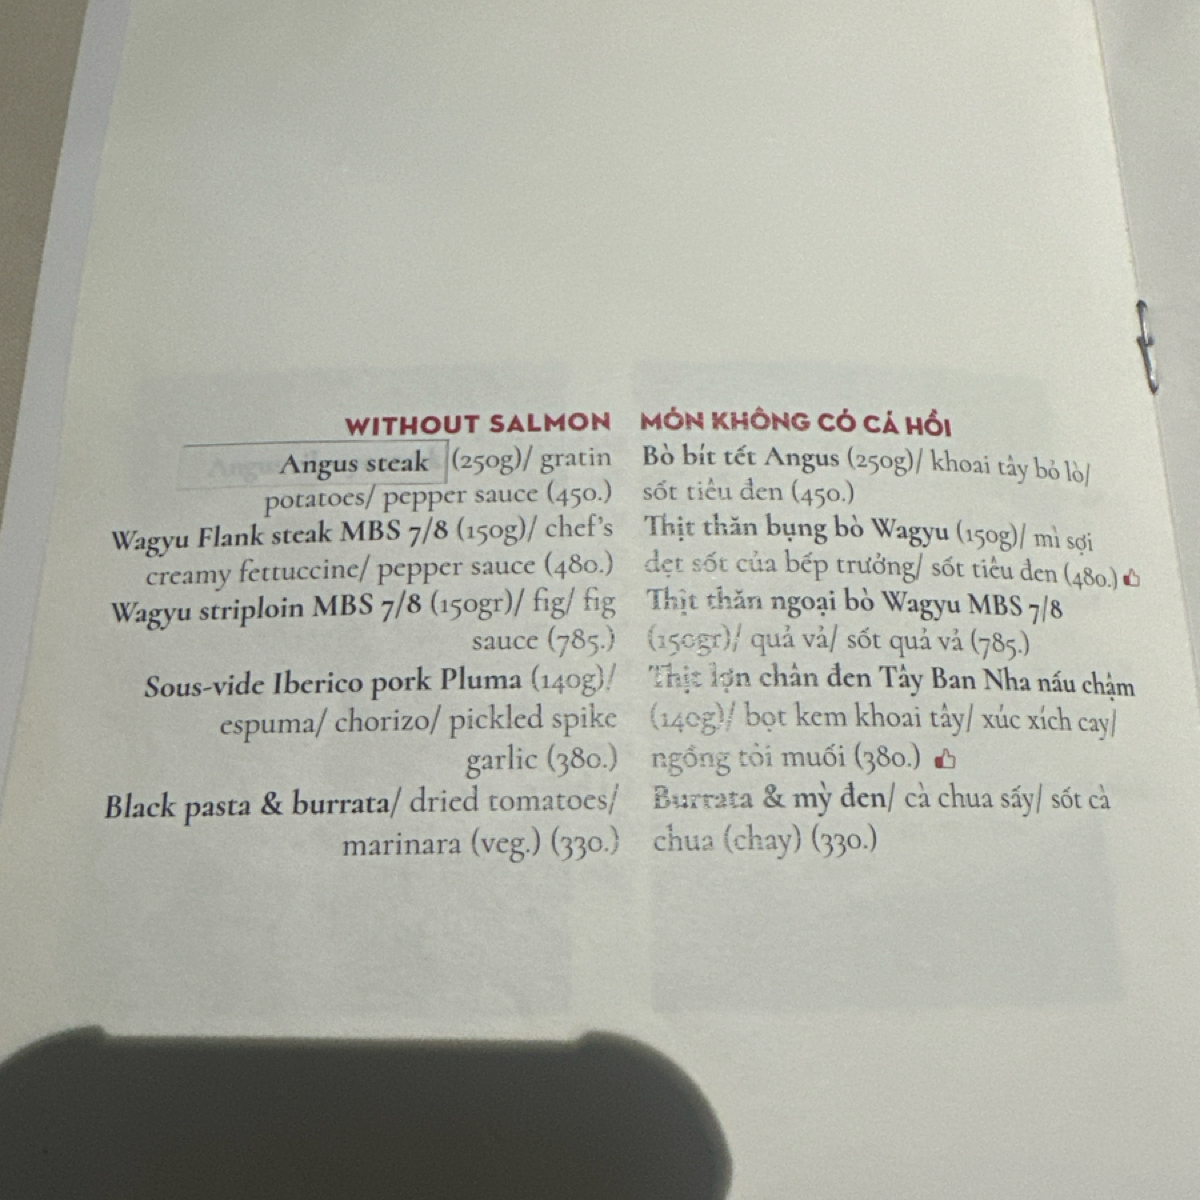 WITHOUT SALMON
Angus steak (250g)/ gratin
potatoes/ pepper sauce (450.)
Wagyu Flank steak MBS 7/8 (150g)/ chef's
creamy fettuccine/ pepper sauce (480.)
Wagyu striploin MBS 7/8 (150gr)/ fig/ fig
sauce (785.)
Sous-vide Iberico pork Pluma (140g)/
espuma/ chorizo/ pickled spike
garlic (380.)
Black pasta & burrata/ dried tomatoes/
marinara (veg.) (330.)
MÓN KHÔNG CÓ CÁ HỒI
Bò bít tết Angus (250g)/ khoai tây bỏ lò/
sốt tiêu đen (450.)
Thịt thăn bụng bò Wagyu (150g)/ mì sợi
dẹt sốt của bếp trưởng/ sốt tiêu đen (480.)
Thịt thăn ngoại bò Wagyu MBS 7/8
(150gr)/ quả vả/ sốt quả vả (785.)
Thịt lợn chân đen Tây Ban Nha nấu chậm
(140g)/ bọt kem khoai tây/ xúc xích cay/
ngồng tỏi muối (380.)
Burrata & mỳ đen/ cà chua sấy/ sốt cà
chua (chay) (330.)